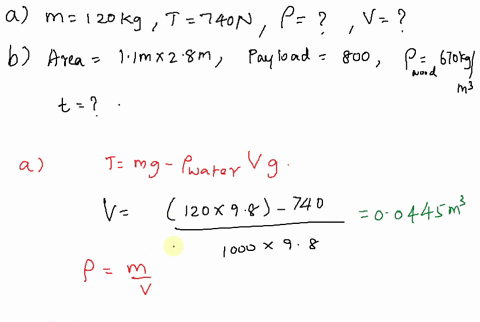 a) m = 120 kg, T = 740N, ρ = ?, V = ?
b) Area = 1.1m x 2.8m, Payload = 800, ρwood = 670 kg/m³
t = ? .
a) T = mg - ρwater Vg.
V = (120 x 9.8) - 740 / 1000 x 9.8 = 0.0445 m³
ρ = m/V